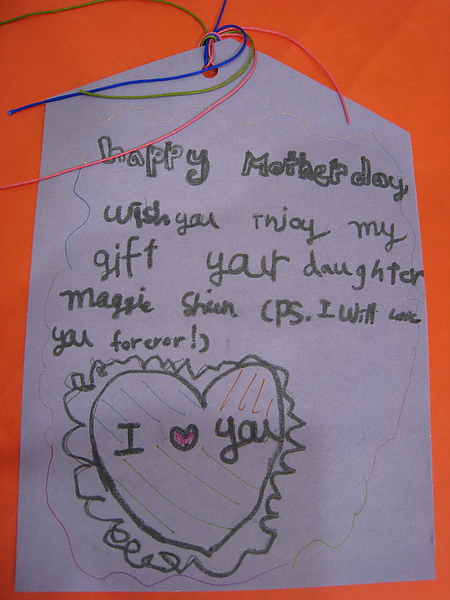 happy Motherday
Wish you Injoy my
gift your daughter
maggie Shien (PS. I will love
you forever!)
I you